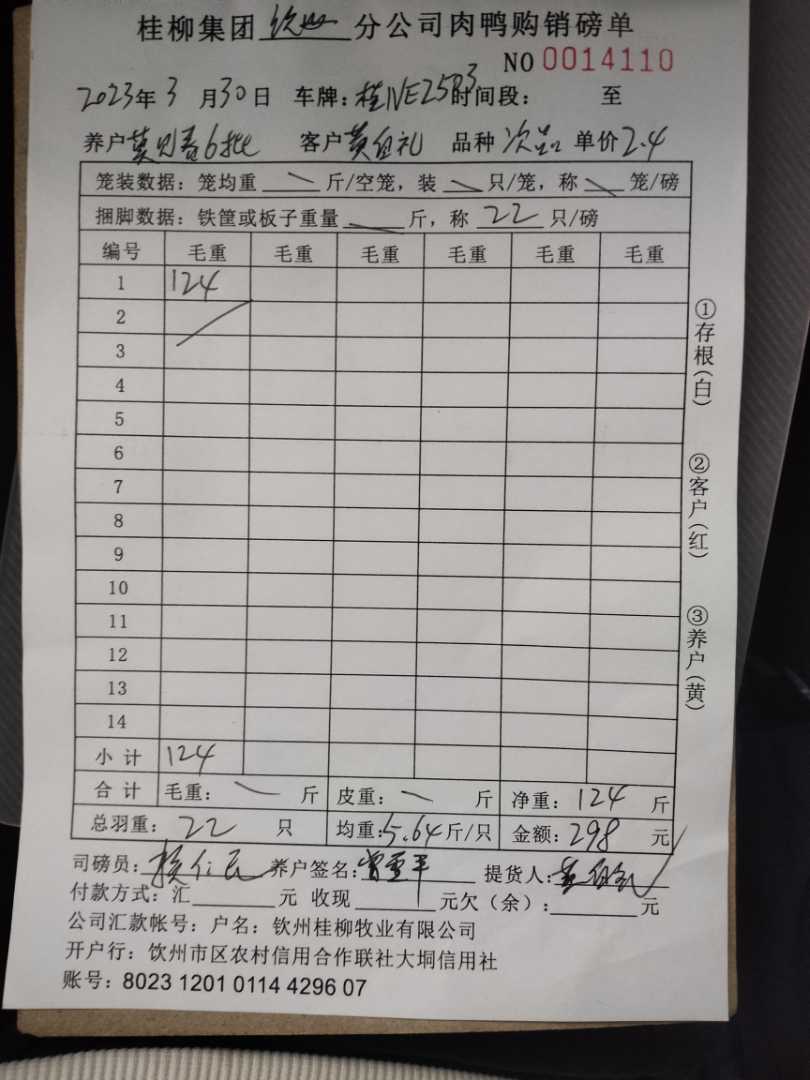 桂柳集团 钦州 分公司肉鸭购销磅单
NO 0014110
2023年 3 月 30 日 车牌：桂NE25B3 时间段： 至
养户 6批 客户 黄自礼 品种 次品 单价 2.4
笼装数据：笼均重 斤/空笼，装 只/笼，称 笼/磅
捆脚数据：铁筐或板子重量 斤，称 22 只/磅
编号 毛重 毛重 毛重 毛重 毛重 毛重
1 124
2
3
4
5
6
7
8
9
10
11
12
13
14
小计 124
合计 毛重： 斤 皮重： 斤 净重：124 斤
总羽重：22 只 均重：5.64 斤/只 金额：298 元
司磅员： 养户签名： 提货人：黄自礼
付款方式：汇 元 收现 元欠（余）： 元
公司汇款帐号：户名：钦州桂柳牧业有限公司
开户行：饮州市区农村信用合作联社大垌信用社
账号：8023 1201 0114 4296 07
①存根（白）
②客户（红）
③养户（黄）